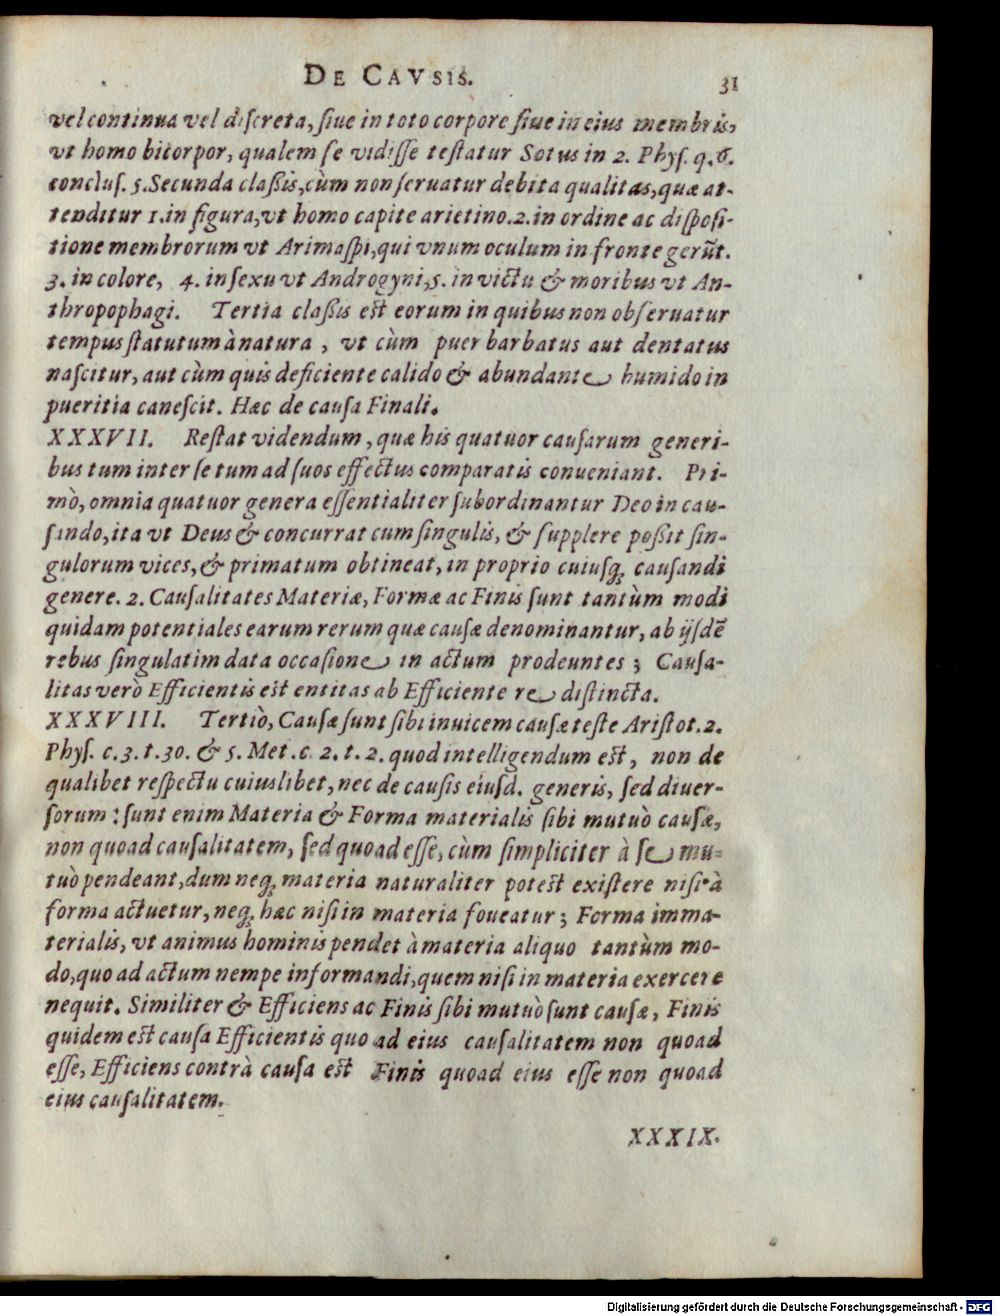 DE CAVSIS.
31
vel continua vel discreta, siue in toto corpore siue in eius membris,
vt homo bicorpor, qualem se vidisse testatur Sotus in 2. Phys. q. 6.
conclus. 5. Secunda classis, cùm non seruatur debita qualitas, quæ at-
tenditur 1. in figura, vt homo capite arietino. 2. in ordine ac disposi-
tione membrorum vt Arimaspi, qui vnum oculum in fronte gerũt.
3. in colore, 4. in sexu vt Androgyni, 5. in victu & moribus vt An-
thropophagi. Tertia classis est eorum in quibus non obseruatur
tempus statutum à natura, vt cùm puer barbatus aut dentatus
nascitur, aut cùm quis deficiente calido & abundante humido in
pueritia canescit. Hæc de causa Finali.
XXXVII. Restat videndum, quæ his quatuor causarum generi-
bus tum inter se tum ad suos effectus comparatis conueniant. Pri-
mò, omnia quatuor genera essentialiter subordinantur Deo in cau-
sando, ita vt Deus & concurrat cum singulis, & supplere possit sin-
gulorum vices, & primatum obtineat, in proprio cuiusq; causandi
genere. 2. Causalitates Materiæ, Formæ ac Finis sunt tantùm modi
quidam potentiales earum rerum quæ causæ denominantur, ab ijsdē
rebus singulatim data occasione in actum prodeuntes; Causa-
litas verò Efficientis est entitas ab Efficiente re distincta.
XXXVIII. Tertiò, Causæ sunt sibi inuicem causæ teste Aristot. 2.
Phys. c. 3. t. 30. & 5. Met. c. 2. t. 2. quod intelligendum est, non de
qualibet respectu cuiuslibet, nec de causis eiusd. generis, sed diuer-
sorum: sunt enim Materia & Forma materialis sibi mutuò causæ,
non quoad causalitatem, sed quoad esse, cùm simpliciter à se mu-
tuò pendeant, dum neq; materia naturaliter potest existere nisi à
forma actuetur, neq; hæc nisi in materia foueatur; Forma imma-
terialis, vt animus hominis pendet à materia aliquo tantùm mo-
do, quo ad actum nempe informandi, quem nisi in materia exercere
nequit. Similiter & Efficiens ac Finis sibi mutuò sunt causæ, Finis
quidem est causa Efficientis quo ad eius causalitatem non quoad
esse, Efficiens contrà causa est Finis quoad eius esse non quoad
eius causalitatem.
XXXIX.
Digitalisierung gefördert durch die Deutsche Forschungsgemeinschaft - DFG